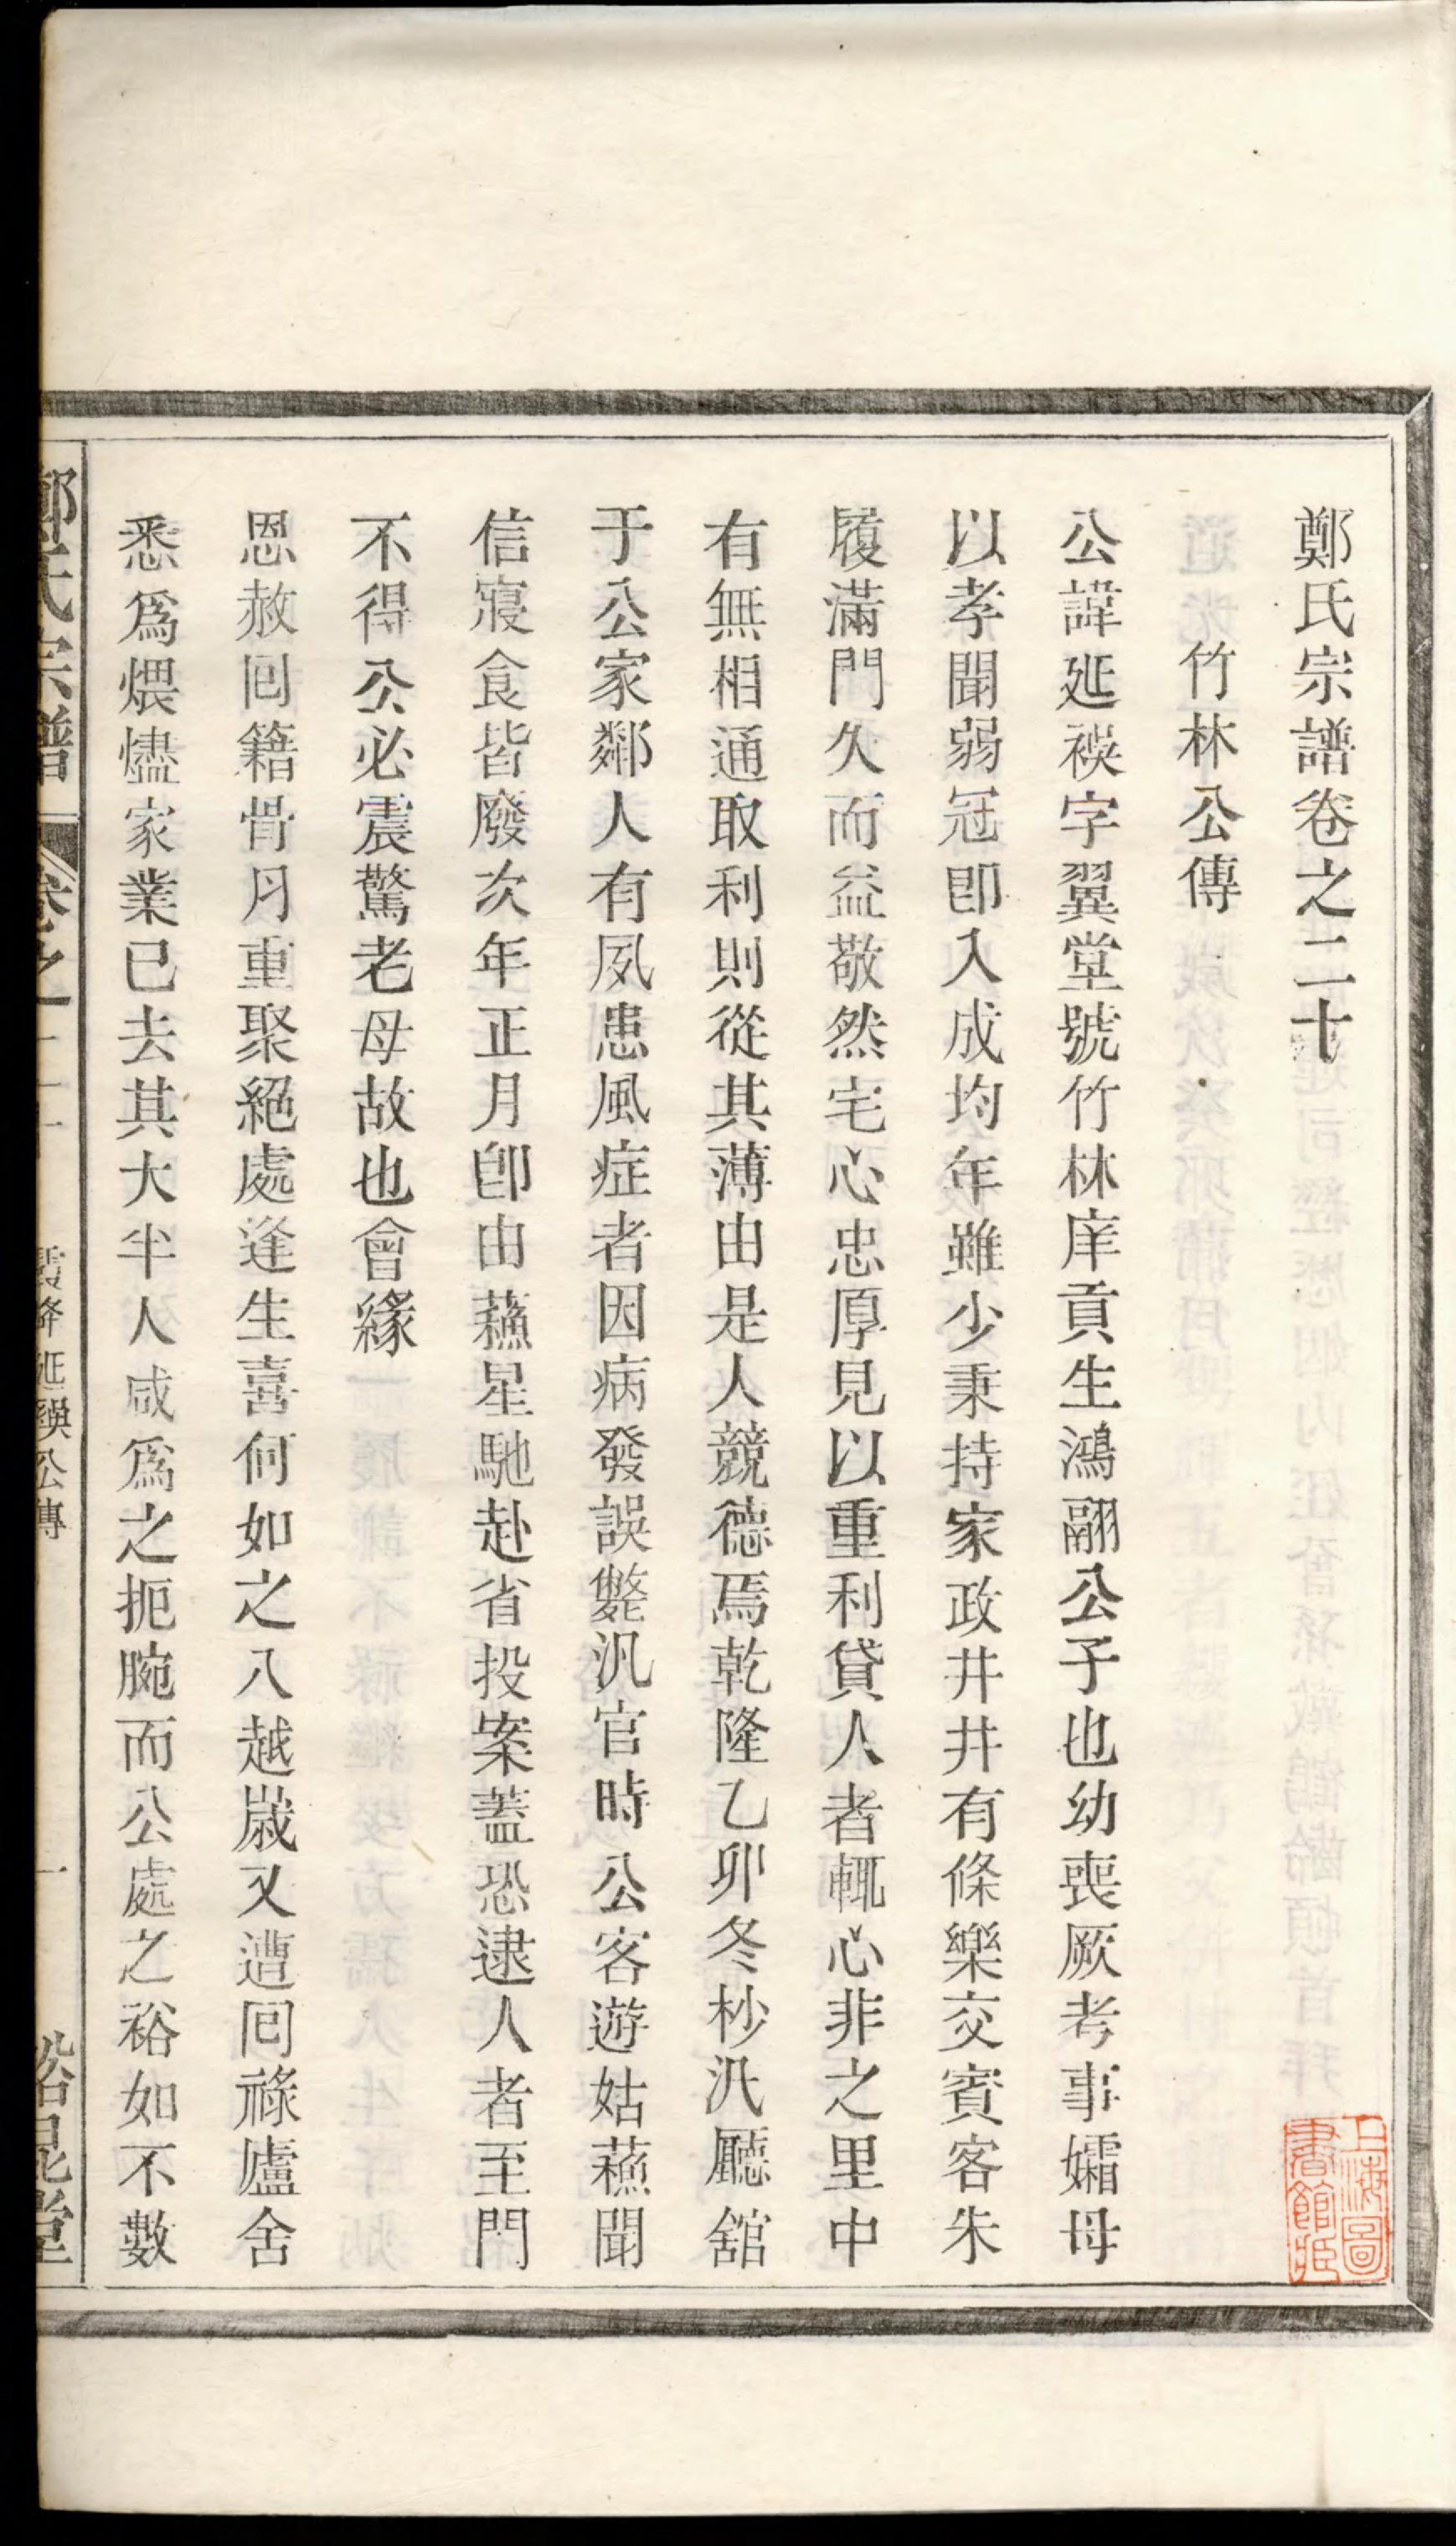 鄭氏宗譜卷之二十
竹林公傳
公諱延䄂字翼堂號竹林庠貢生鴻翮公子也幼喪厥考事孀母
以孝聞弱冠卽入成均年雖少秉持家政井井有條樂交賓客朱
履滿門久而益敬然宅心忠厚見以重利貸人者輒心非之里中
有無相通取利則從其薄由是人競德焉乾隆乙卯冬杪汛廳舘
于公家鄰人有夙患風症者因病發誤斃汛官時公客遊姑蘓聞
信寢食皆廢次年正月卽由蘓星馳赴省投案蓋恐逮人者至門
不得公必震驚老母故也會緣
恩赦回籍骨月重聚絕處逢生喜何如之八越歲又遭回祿廬舍
悉爲煨燼家業已去其大半人咸爲之扼腕而公處之裕如不數
鄭氏宗譜 卷之二十 公傳 一 裕昆堂
上海圖書館藏